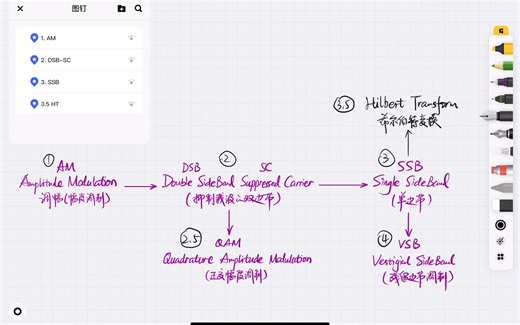 图钉
1. AM
2. DSB-SC
3. SSB
3.5 HT
3.5 Hilbert Transform
希尔伯特变换
① AM
Amplitude Modulation
调幅(幅度调制)
② DSB SC
Double SideBand Suppressed Carrier
(抑制载波双边带)
③ SSB
Single SideBand
(单边带)
2.5 QAM
Quadrature Amplitude Modulation
(正交幅度调制)
④ VSB
Vestigial SideBand
(残留边带调制)